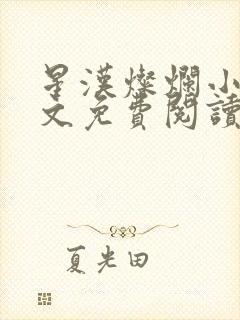 星漢燦爛小
文免費閱讀
夏光田